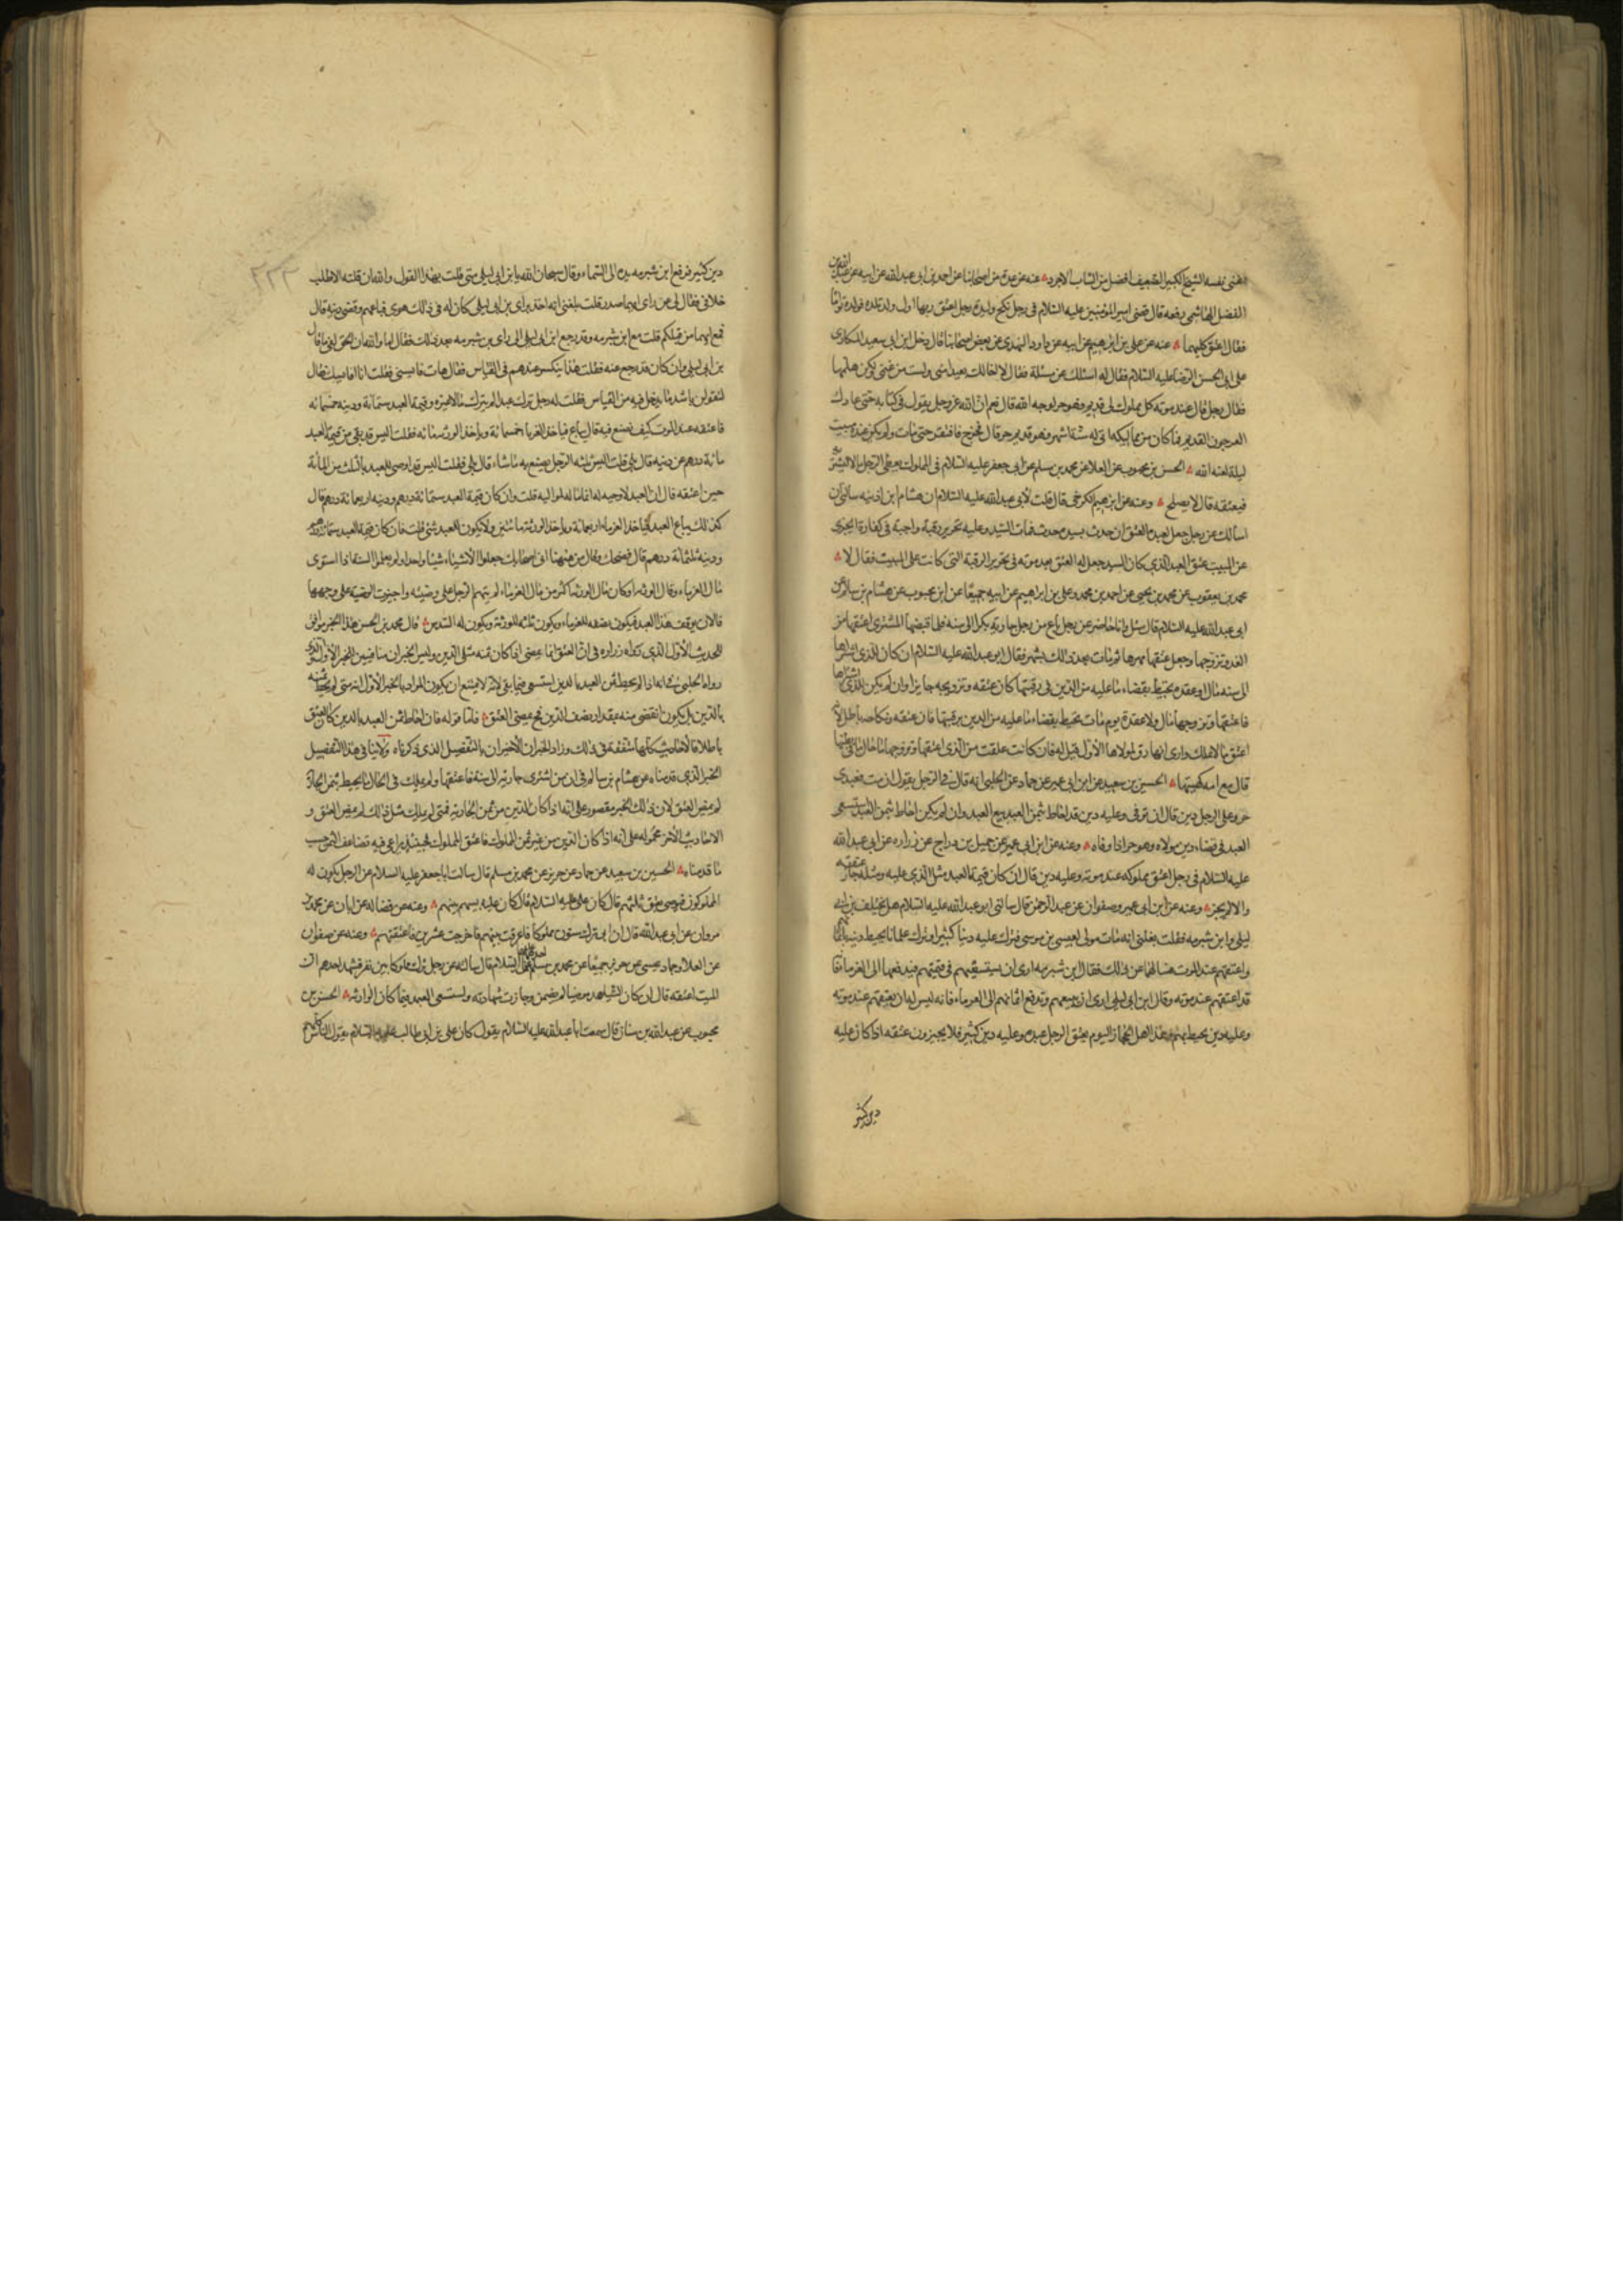 اغنى نفسه الشيخ الكبير الضعيف افضل من الشاب الاجرد عنه عن عدة من اصحابنا عن احمد بن ابي عبد الله عن ابيه عن عبد الله بن
الفضل الهاشمي رفعه قال قضى امير المؤمنين عليه السلام في رجل نكح وليدة رجل اعتق ربها اول ولد تلده فولدت توأما
فقال اعتق كليهما عنه عن علي بن ابرهيم عن ابيه عن داود النهدي عن بعض اصحابنا قال دخل ابن ابي سعيد المكاري
على ابي الحسن الرضا عليه السلام فقال له اسئلك عن مسئلة فقال لا اخالك تقبل مني ولست من غنمي ولكن هلمها
فقال رجل قال عند موته كل مملوك لي قديم فهو حر لوجه الله قال نعم ان الله عز وجل يقول في كتابه حتى عاد كـ
العرجون القديم فما كان من مماليكه اتى له ستة اشهر فهو قديم حر قال فخرج فافتقر حتى مات ولم يكن عنده مبيت
ليلة لعنه الله الحسن بن محبوب عن العلا عن محمد بن مسلم عن ابي جعفر عليه السلام في المملوك يعطي الرجل مالا ليشتريه
فيعتقه قال لا يصلح وعنه عن ابرهيم الكرخي قال قلت لأبي عبد الله عليه السلام ان هشام ابن اذينه سالني ان
اسألك عن رجل جعل لعبده العتق ان حدث بسيده حدث فمات السيد وعليه تحرير رقبة واجبة في كفارة ايجزي
عن الميت عتق العبد الذي كان السيد جعل له العتق بعد موته في تحرير الرقبة التي كانت على الميت فقال لا
محمد بن يعقوب عن محمد بن يحيى عن احمد بن محمد وعلي بن ابرهيم عن ابيه جميعا عن ابن محبوب عن هشام بن سالم عن
ابي عبد الله عليه السلام قال سئل وانا حاضر عن رجل باع من رجل جارية بكرا الى سنه فلما قبضها المشتري اعتقها من
الغد وتزوجها وجعل عتقها مهرها ثم مات بعد ذلك بشهر فقال ابو عبد الله عليه السلام ان كان الذي اشتراها
الى سنه مال او عقدة تحيط بقضاء ما عليه من الدين في رقبتها كان عتقه وتزويجه جايزا وان لم يكن للذي اشتراها
فاعتقها وتزوجها مال ولا عقدة يوم مات تحيط بقضاء ما عليه من الدين برقبتها فان عتقه ونكاحه باطل لانه
اعتق ما لا يملك وارى انها رق لمولاها الأول قيل له فان كانت علقت من الذي اعتقها وتزوجها ما حال ما في بطنها
قال مع امه كهيئتها الحسين بن سعيد عن ابن ابي عمير عن حماد عن الحلبي انه قال في الرجل يقول ان مت فعبدي
حر وعلى الرجل دين قال ان توفي وعليه دين قد احاط بثمن العبد بيع العبد وان لم يكن احاط بثمن العبد استسعي
العبد في قضاء دين مولاه وهو حر اذا اوفاه وعنه عن ابن ابي عمير عن جميل بن دراج عن زرارة عن ابي عبد الله
عليه السلام في رجل اعتق مملوكه عند موته وعليه دين قال ان كان قيمة العبد مثل الذي عليه ومثله جاز عتقه
والا لم يجز وعنه عن ابن ابي عمير وصفوان عن عبد الرحمن قال سالني ابو عبد الله عليه السلام هل يختلف بن ابي
ليلى وابن شبرمه فقلت بلغني انه مات مولى لعيسى بن موسى فترك عليه دينا كثيرا وترك غلمانا يحيط دينه باثمانهم
واعتقهم عند الموت فسالهما عن ذلك فقال ابن شبرمه ارى ان يستسعيهم في قيمتهم فيدفعها الى الغرماء فانه
قد اعتقهم عند موته وقال ابن ابي ليلى ارى ان يبيعهم وتدفع اثمانهم الى الغرماء فانه ليس له ان يعتقهم عند موته
وعليه دين يحيط بهم وهذا اهل الحجاز اليوم يعتق الرجل عبده وعليه دين كثير فلا يجيزون عتقه اذا كان عليه
دين كثير
٢٢٣
دين كثير فرفع ابن شبرمه يده الى السماء وقال سبحان الله يا بن ابي ليلى متى قلت بهذا القول والله ان قلته الا طلب
خلافي فقال لي عن راي ايهما صدر قلت بلغني انه اخذ براي بن ابي ليلى كان له في ذلك هوى فباعهم وقضى دينه قال
فمع ايهما من قبلكم قلت مع ابن شبرمه وقد رجع ابن ابي ليلى الى راي بن شبرمه بعد ذلك فقال اما والله ان الحق لفي ما قال
بن ابي ليلى وان كان قد رجع عنه فقلت هذا ينكسر عندهم في القياس فقال هات قايسني فقلت انا اقايسك فقال
لتقولن باشد ما يدخل فيه من القياس فقلت له رجل ترك عبدا لم يترك مالا غيره وقيمة العبد ستمائة ودينه خمسمائه
فاعتقه عند الموت كيف يصنع فيه قال يباع فياخذ الغرما خمسمائة وياخذ الورثه مائه فقلت اليس قد بقي من قيمة العبد
مائة درهم عن دينه قال بلى قلت اليس للرجل ثلثه يصنع به ما شاء قال بلى فقلت اليس قد اوصى للعبد بالثلث من المأة
حين اعتقه قال ان العبد لا وصية له انما ماله لمواليه قلت وان كان قيمة العبد ستمائة درهم ودينه اربعمائة درهم قال
كذلك يباع العبد فياخذ الغرماء اربعمائة وياخذ الورثة مائتين ولا يكون للعبد شئ قلت فان كان قيمة العبد ستمائة درهم
ودينه ثلثمائة درهم قال فضحك وقال من ههنا اتى اصحابك جعلوا الأشياء شيئا واحدا ولم يعلموا السنة اذا استوى
مال الغرماء وقال الورثه او كان مال الورثه اكثر من مال الغرماء لم يتهم الرجل على وصيته واجيزت الوصية على وجهها
فالان يوقف هذا العبد فيكون نصفه للغرماء ويكون ثلثه للورثة ويكون له السدس قال محمد بن الحسن هذا الخبر موافق
للحديث الأول الذي رواه زراره في ان العتق انما يمضي اذا كان ثمنه مثلي الدين وليس الخبران منافيين للخبر الأول الذي
رواه الحلبي في انه اذا لم يحط ثمن العبد بالدين استسعي فيما بقي لانه لا يمتنع ان يكون المراد بالخبر الأول انه متى لم يحط ثمنه
بالدين بل يكون انقص منه بمقدار نصف الدين صح مضي العتق فاما قوله فان احاط ثمن العبد بالدين كان العتق
باطلا فالاحاديث كلها متفقة في ذلك وزاد الخبران الاخيران بالتفصيل الذي ذكرناه ولا ينافي هذا التفصيل
الخبر الذي قدمناه عن هشام بن سالم في ان من اشترى جارية الى سنة فاعتقها ولم يملك في الحال ما يحيط بثمن الجارية
لم يمض العتق لان ذلك الخبر مقصور على انه اذا كان الدين من ثمن الجارية فمتى لم يملك مثل ذلك لم يمض العتق و
الاحاديث الأخر محموله على انه اذا كان الدين من غير ثمن المملوك فاعتق المملوك فحينئذ يراعى فيه تضاعف الثمن حسب
ما قدمناه الحسين بن سعيد عن حماد عن حريز عن محمد بن مسلم قال سالت ابا جعفر عليه السلام عن الرجل يكون له
المملوكون فيوصي بعتق ثلثهم قال كان علي عليه السلام قال كان عليه يسهم بينهم وعنه عن فضاله عن ابان عن محمد بن
مروان عن ابي عبد الله قال ان ابي ترك ستون مملوكا فاقرعت بينهم فاخرجت عشرين فاعتقتهم وعنه عن صفوان
عن العلا وحماد بن عيسى عن حريز جميعا عن محمد بن مسلم عن احدهما عليهما السلام قال سالته عن رجل ترك مملوكا بين نفر فشهد احدهم ان
الميت اعتقه قال ان كان الشاهد مرضيا لم يضمن وجازت شهادته ويستسعى العبد فيما كان للورثه الحسن بن
محبوب عن عبد الله بن سنان قال سمعت ابا عبد الله عليه السلام يقول كان علي بن ابي طالب عليه السلام يقول الناس كلهم